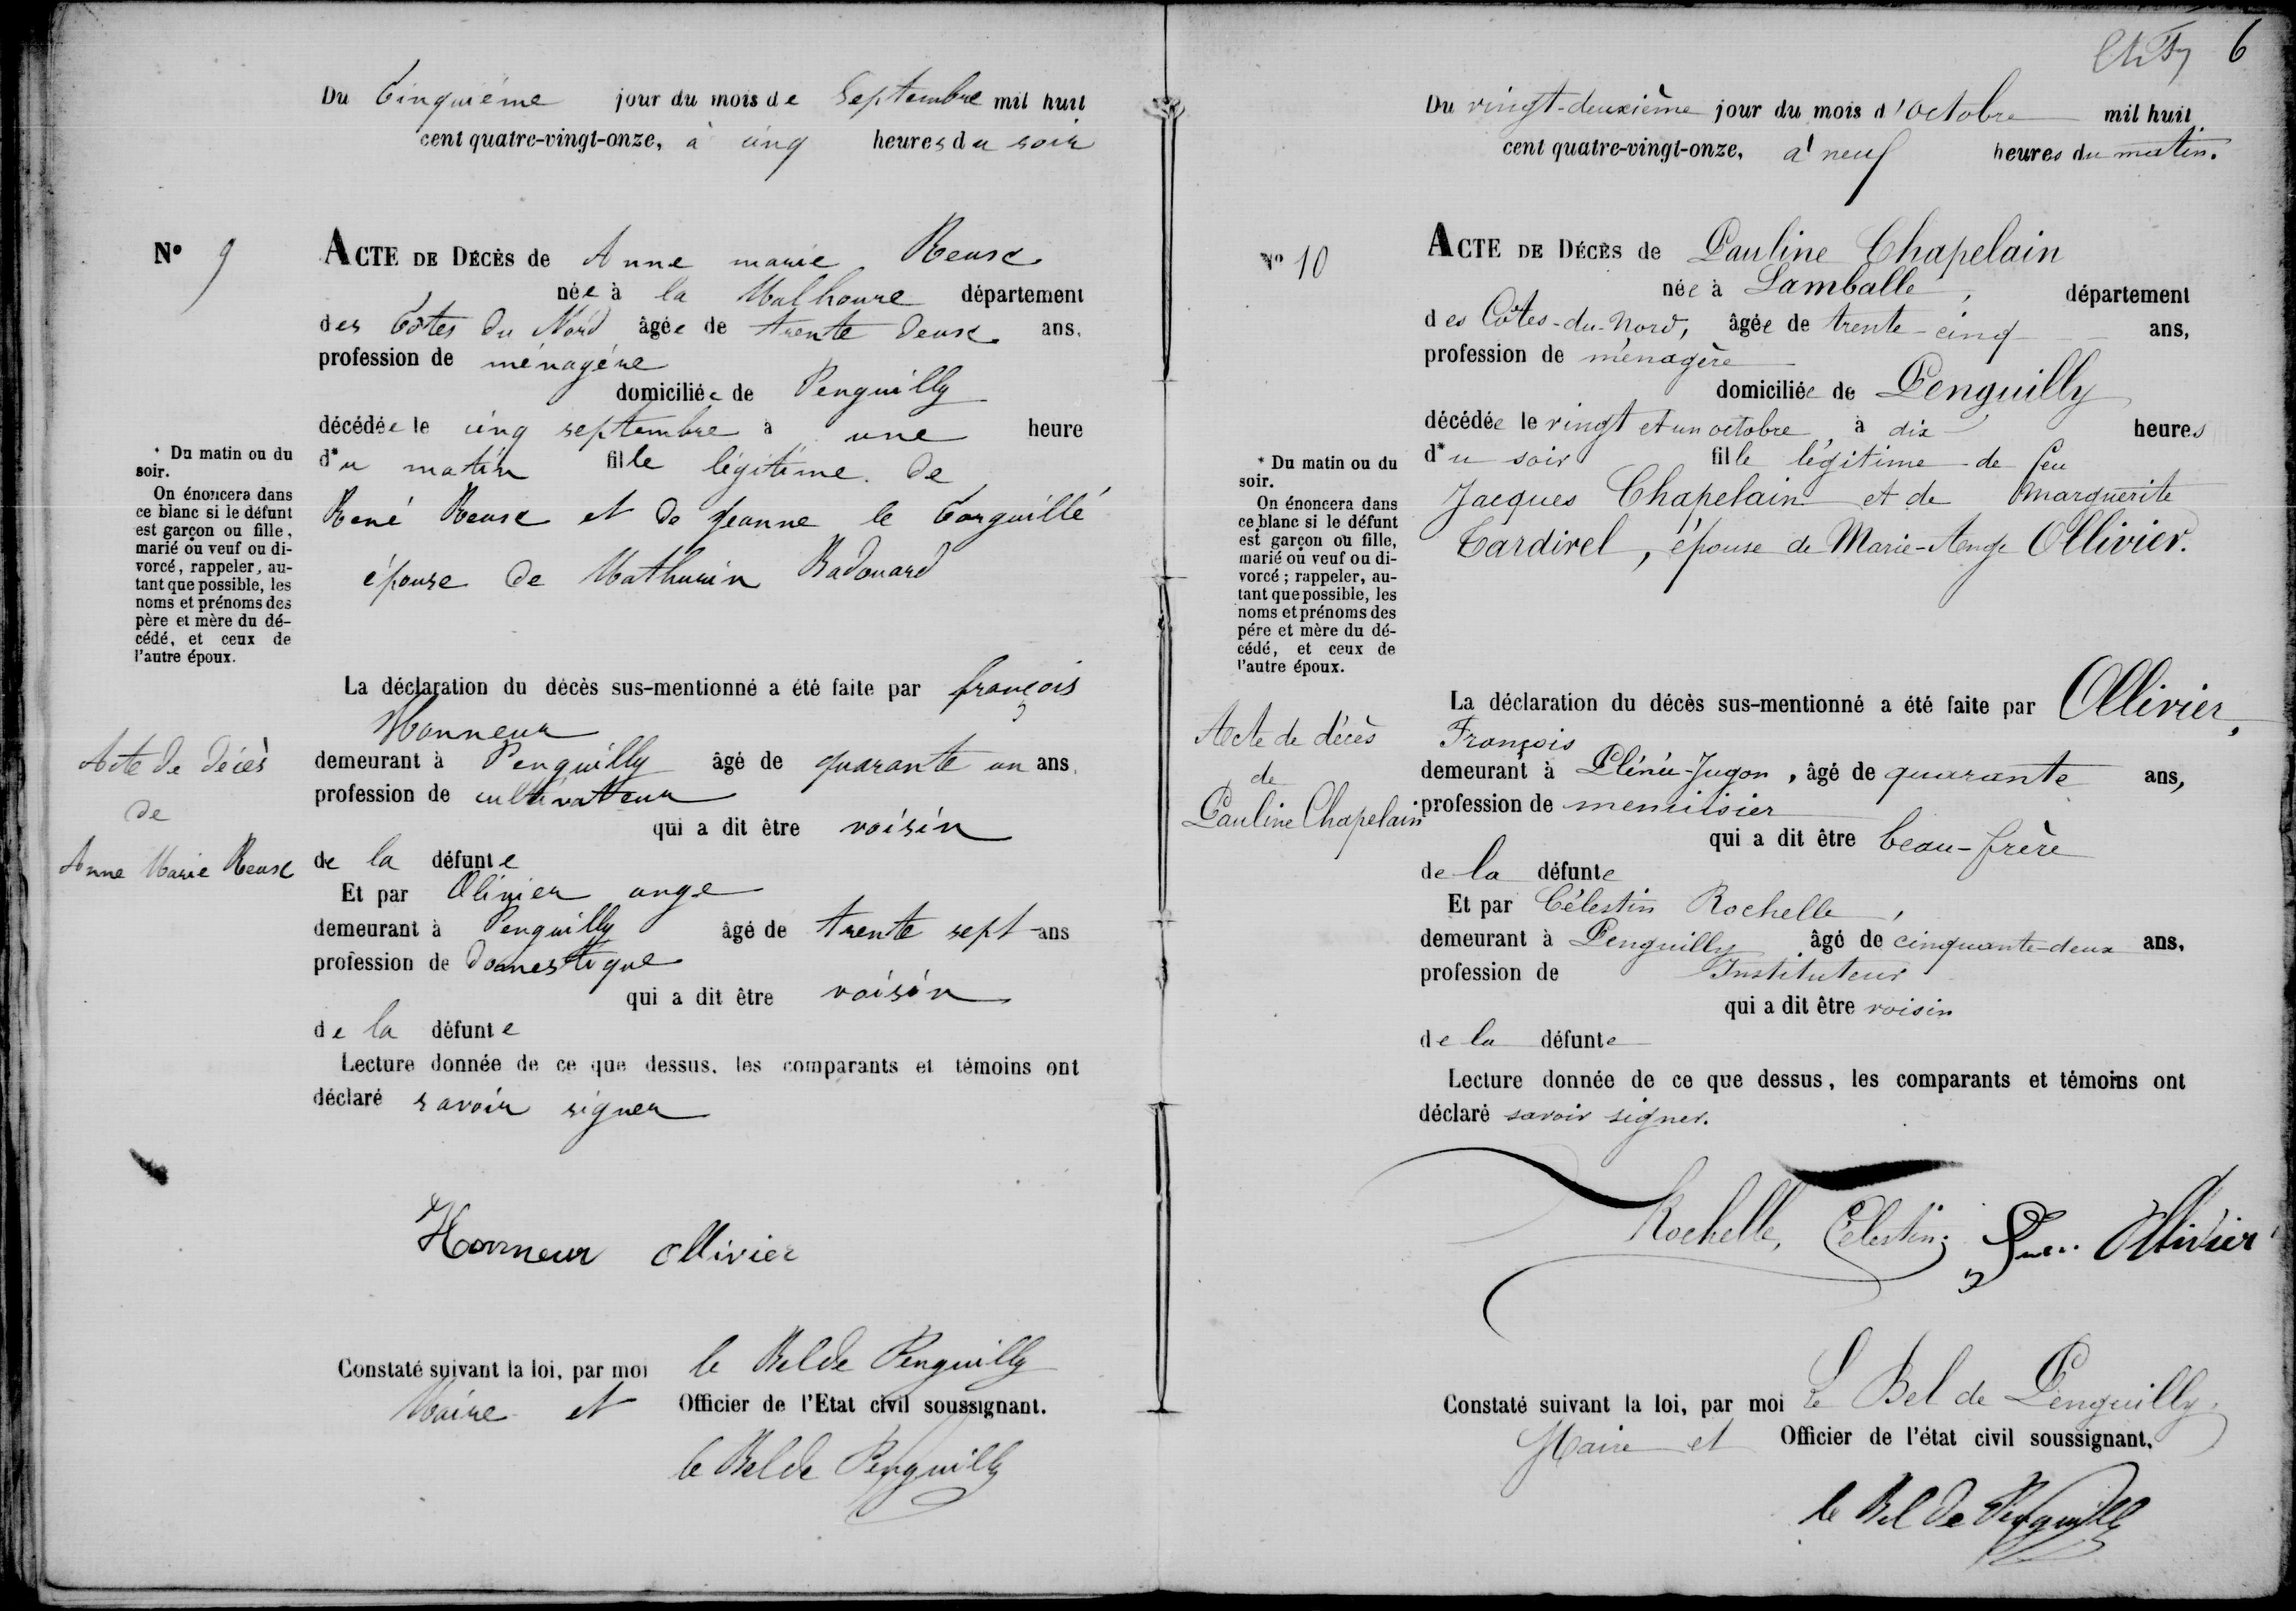 Du Cinquième jour du mois de Septembre mil huit
cent quatre-vingt-onze, à cinq heures du soir
N° 9
ACTE DE DÉCÈS de Anne marie Reux
née à la Malhoure département
des Côtes du Nord âgée de trente deux ans.
profession de ménagère
domiciliée de Penguilly
décédée le cinq septembre à une heure
d*u matin fille légitime de
René Reux et de Jeanne le Corguillé
épouse de Mathurin Radouard
* Du matin ou du
soir.
On énoncera dans
ce blanc si le défunt
est garçon ou fille,
marié ou veuf ou di-
vorcé, rappeler, au-
tant que possible, les
noms et prénoms des
père et mère du dé-
cédé, et ceux de
l'autre époux.
La déclaration du décès sus-mentionné a été faite par françois
Honneur
demeurant à Penguilly âgé de quarante un ans,
profession de cultivateur
qui a dit être voisin
de la défunte
Acte de décès
de
Anne Marie Reux
Et par Olivier ange
demeurant à Penguilly âgé de trente sept ans
profession de Domestique
qui a dit être voisin
de la défunte
Lecture donnée de ce que dessus, les comparants et témoins ont
déclaré savoir signer
Honneur Ollivier
Constaté suivant la loi, par moi le Bel de Penguilly
Maire et Officier de l'Etat civil soussignant.
le Bel de Penguilly
6
Du vingt-deuxième jour du mois d'octobre mil huit
cent quatre-vingt-onze, à neuf heures du matin.
N° 10
ACTE DE DÉCÈS de Pauline Chapelain
née à Lamballe, département
des Côtes-du-Nord, âgée de trente-cinq ans,
profession de ménagère
domiciliée de Penguilly
décédée le vingt et un octobre, à dix heures
d*u soir fille légitime de feu
Jacques Chapelain et de Marguerite
Tardivel, épouse de Marie-Ange Ollivier.
* Du matin ou du
soir.
On énoncera dans
ce blanc si le défunt
est garçon ou fille,
marié ou veuf ou di-
vorcé ; rappeler, au-
tant que possible, les
noms et prénoms des
pére et mère du dé-
cédé, et ceux de
l'autre époux.
La déclaration du décès sus-mentionné a été faite par Ollivier,
François
demeurant à Plénée-Jugon, âgé de quarante ans,
profession de menuisier
qui a dit être beau-frère
de la défunte
Acte de décès
de
Pauline Chapelain
Et par Célestin Rochelle,
demeurant à Penguilly âgé de cinquante-deux ans,
profession de Instituteur
qui a dit être voisin
de la défunte
Lecture donnée de ce que dessus, les comparants et témoins ont
déclaré savoir signer.
Rochelle, Célestin; Ollivier
Constaté suivant la loi, par moi Le Bel de Penguilly,
Maire et Officier de l'état civil soussignant,
le Bel de Penguilly